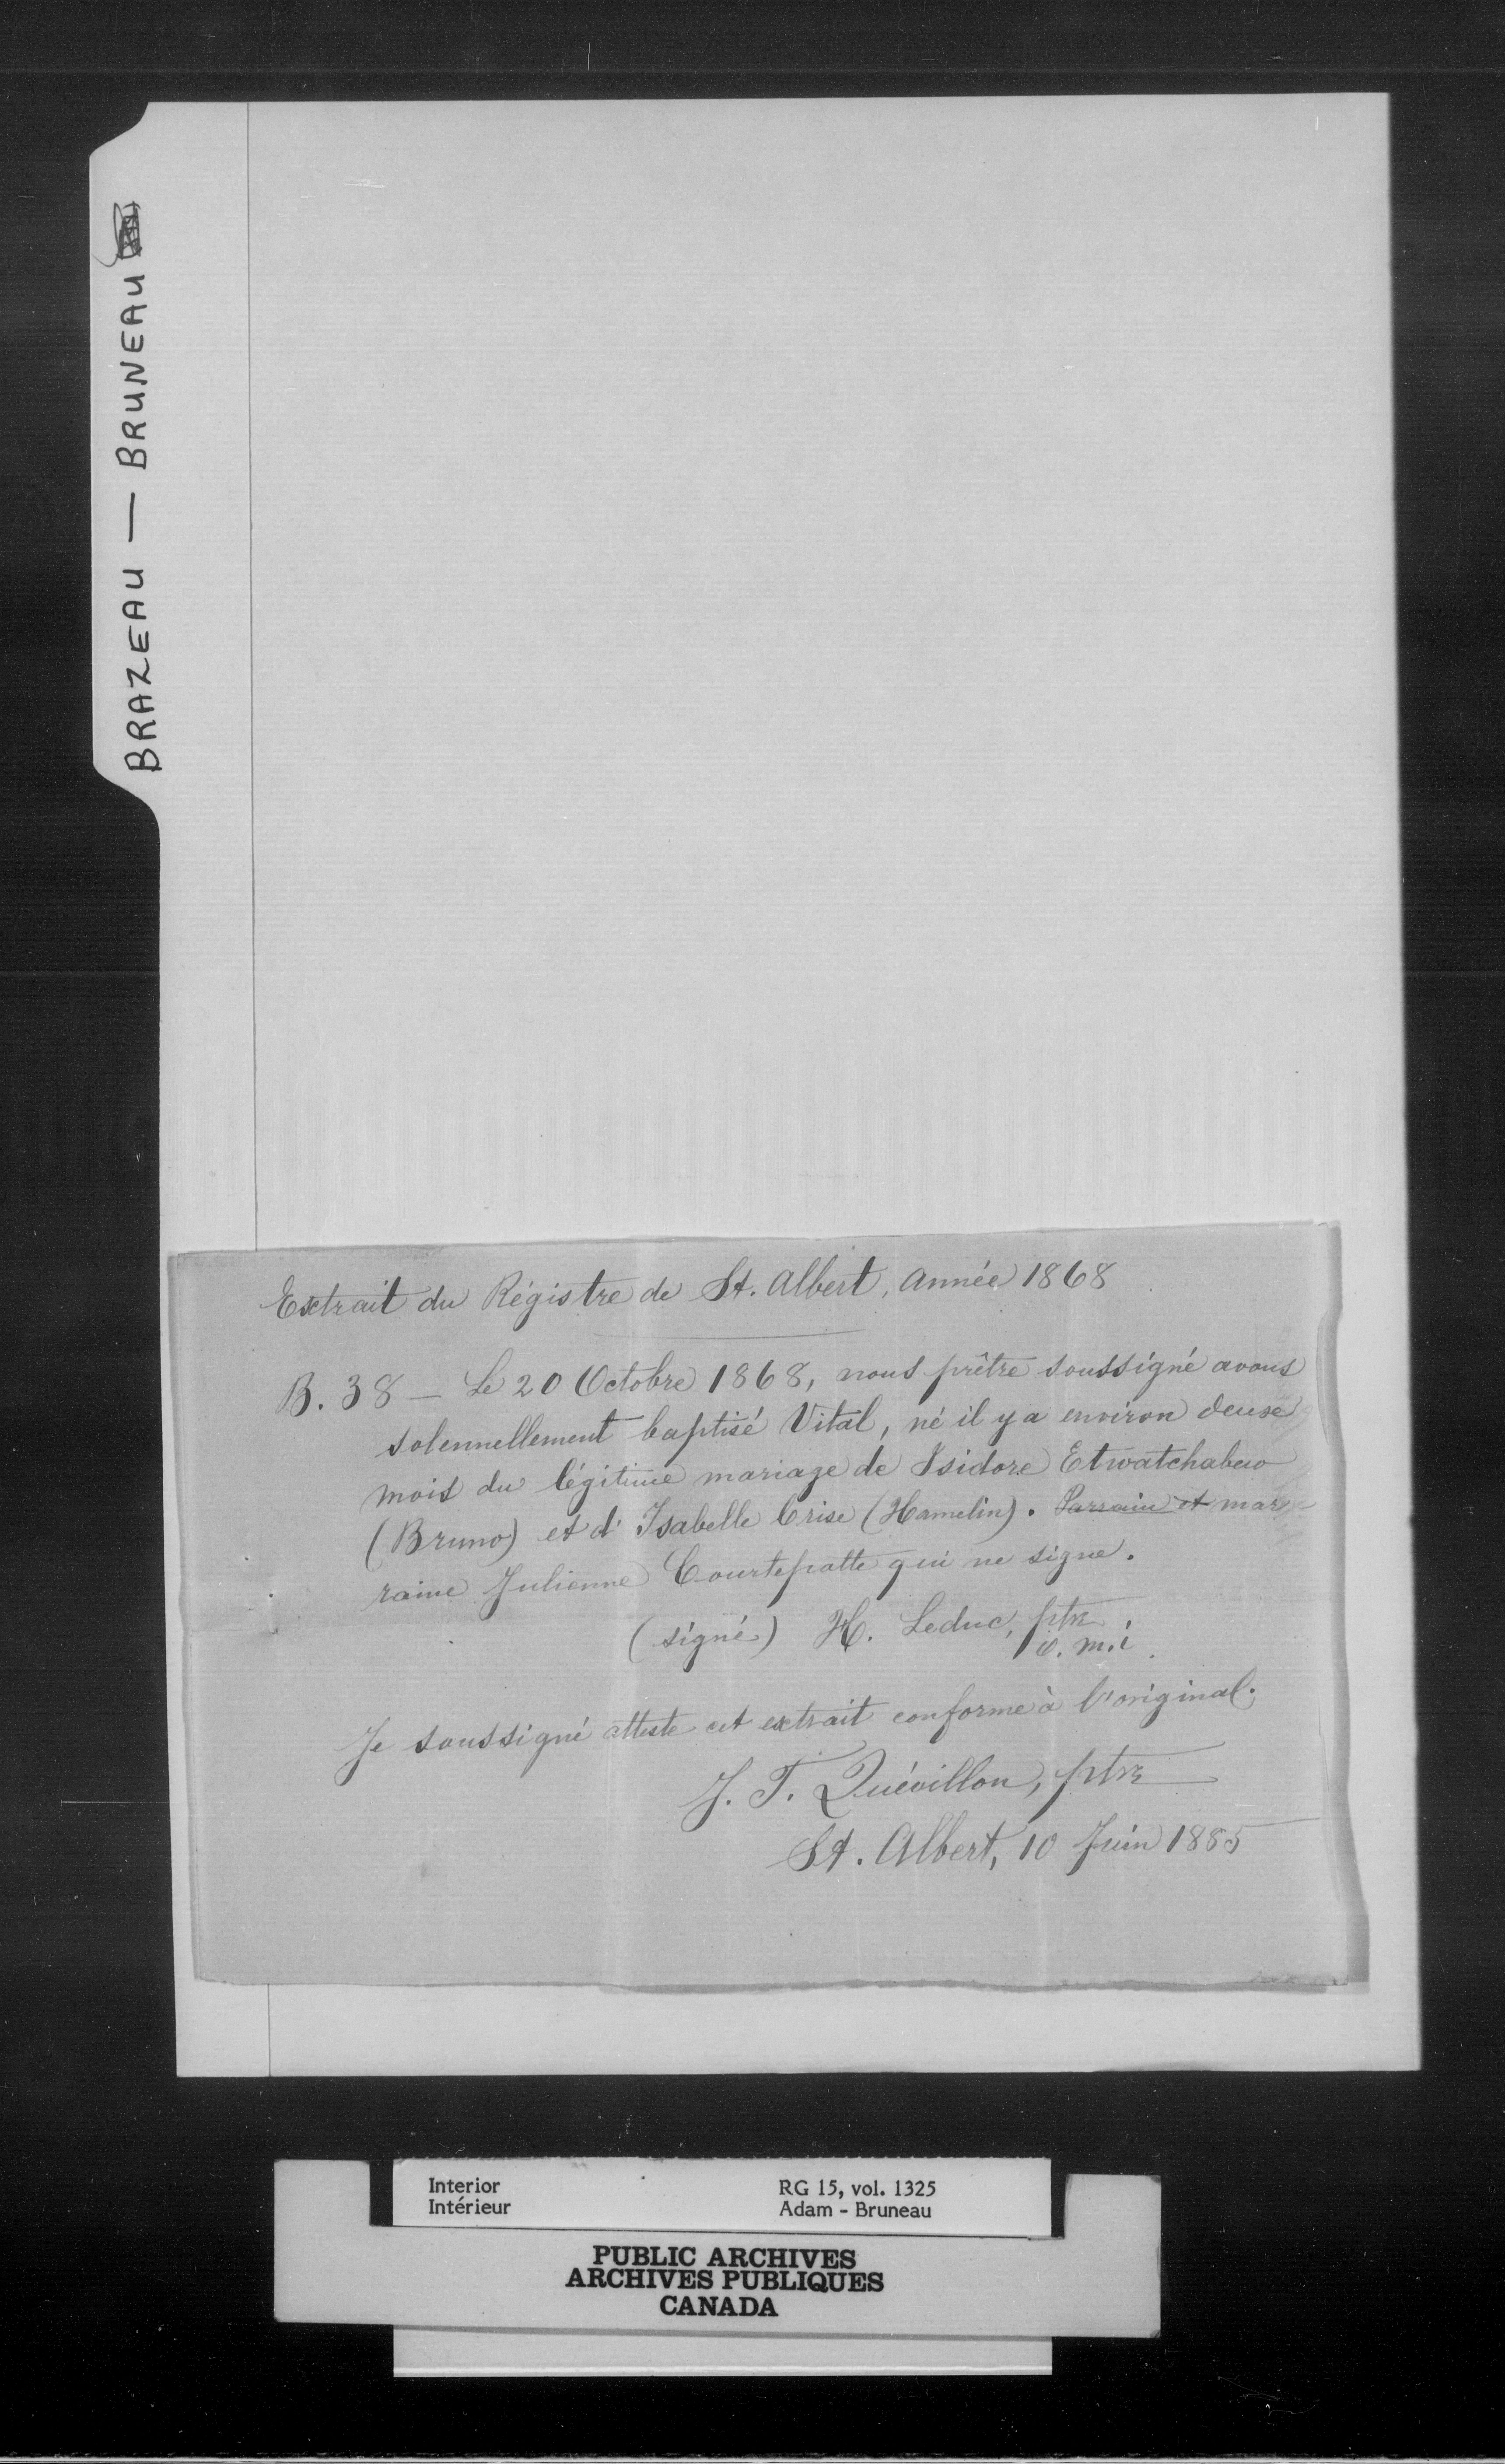 BRAZEAU — BRUNEAU
Extrait du Régistre de St. Albert, année 1868
B. 38 — Le 20 Octobre 1868, nous prêtre soussigné avons
solennellement baptisé Vital, né il y a environ deux
mois du légitime mariage de Isidore Etwatchabew
(Bruno) et d'Isabelle Crise (Hamelin). Parrain et mar-
raine Julienne Courtepatte qui ne signe.
(signé) H. Leduc, ptre
o. m. i.
Je soussigné atteste cet extrait conforme à l'original.
J. T. Quévillon, ptre
St. Albert, 10 Juin 1885
Interior RG 15, vol. 1325
Intérieur Adam - Bruneau
PUBLIC ARCHIVES
ARCHIVES PUBLIQUES
CANADA